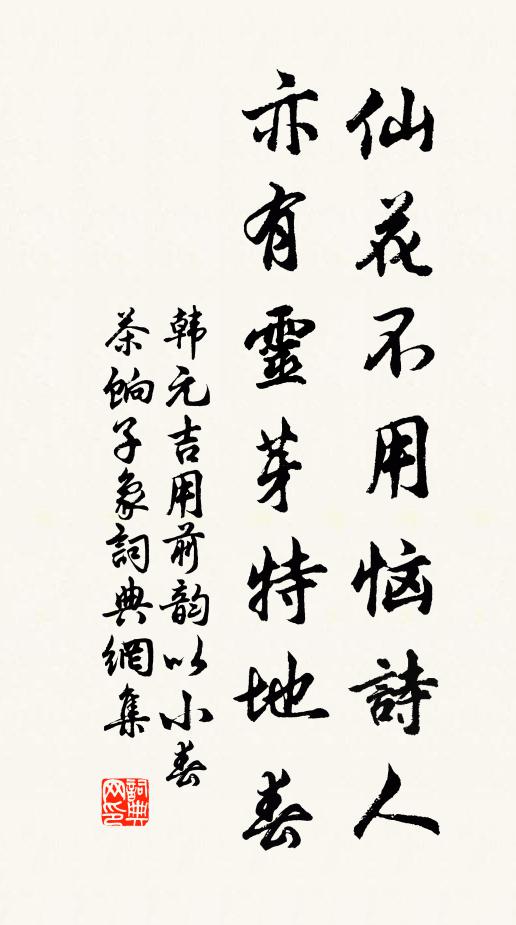 仙花不用恼詩人
亦有靈芽特地春
韩元吉用前韵以小春
茶饷子象詞典網集
詞典网印